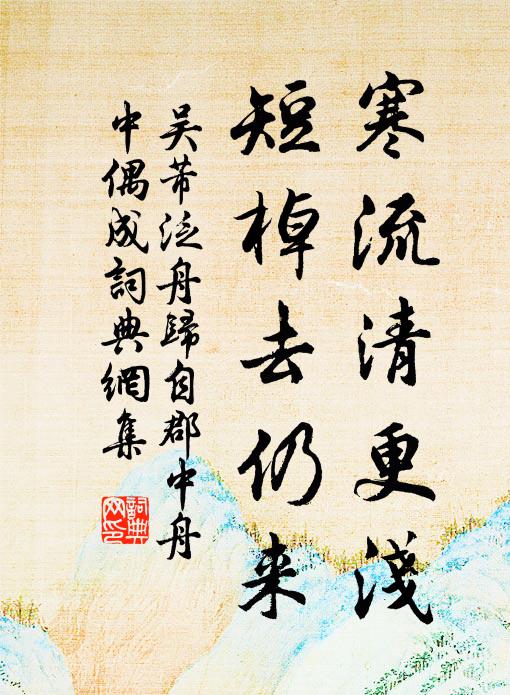 寒流清更淺
短棹去仍来
吴芾泛舟歸自郡中舟
中偶成詞典網集
詞典网印